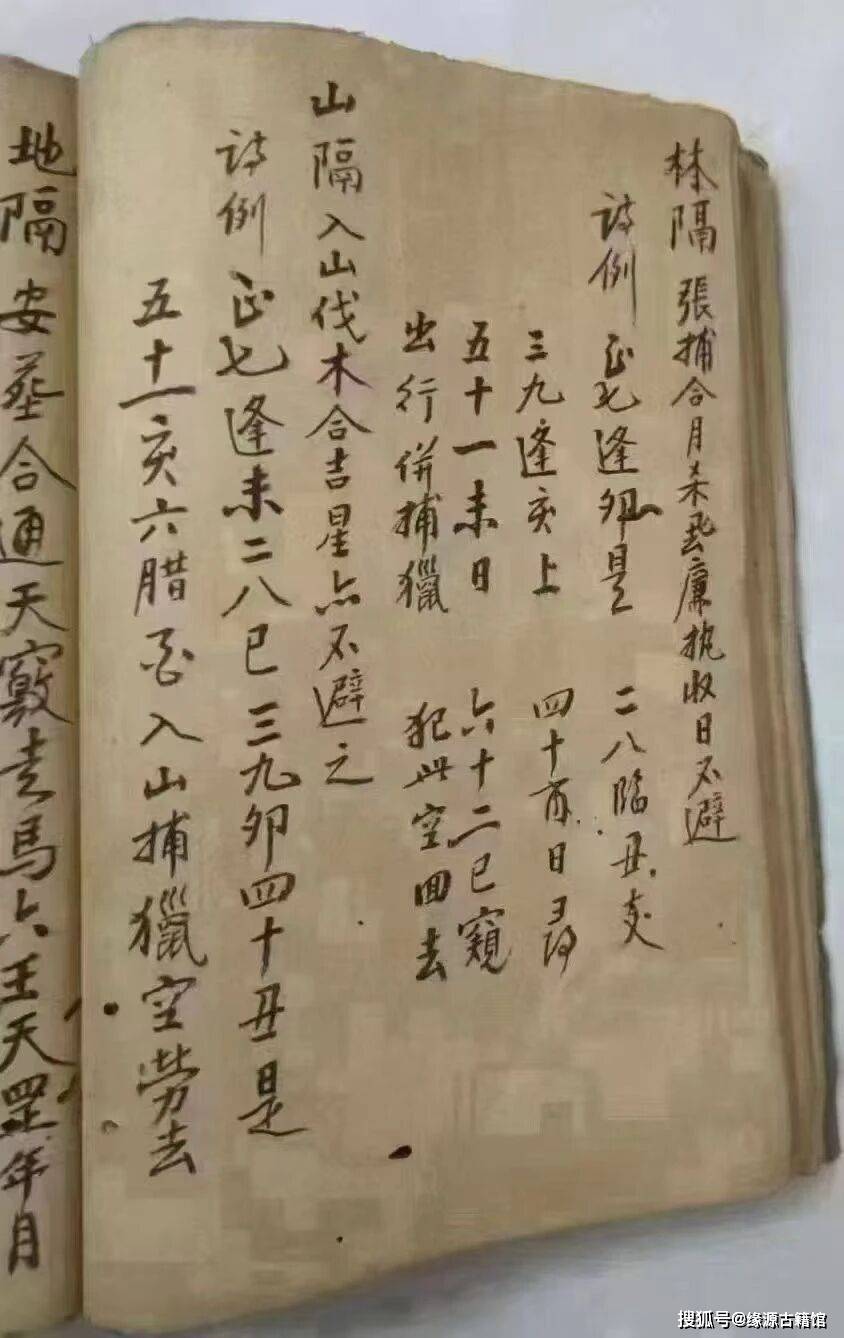 林隔 張捕合月杀飛廉執收日不避
诗例 正七逢卯是 二八臨丑支
三九逢亥上 四十酉日尋
五十一未日 六十二巳窺
出行併捕獵 犯此空回去
山隔入山伐木合吉星亦不避之
诗例 正七逢未二八巳三九卯四十丑是
五十一亥六腊酉入山捕獵空勞去
地隔安葬合通天竅走馬六王天罡年月
搜狐号@缘源古籍馆